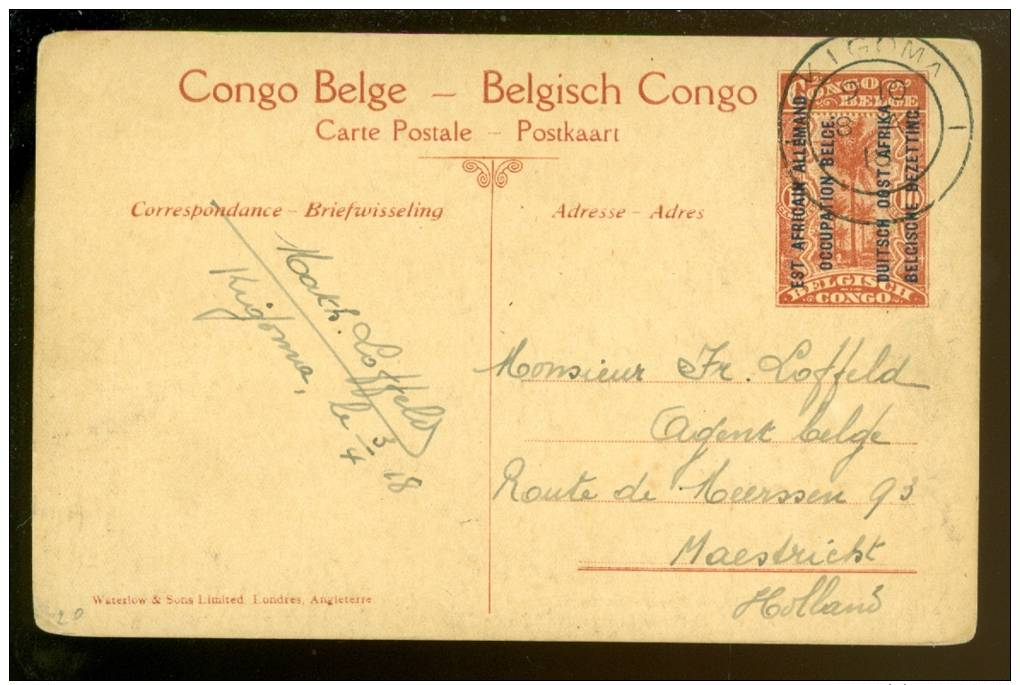 Congo Belge – Belgisch Congo
Carte Postale – Postkaart
Correspondance – Briefwisseling
Adresse – Adres
CONGO
BELGE
BELGISCH
CONGO
EST AFRICAIN ALLEMAND
OCCUPATION BELGE.
DUITSCH OOST AFRIKA
BELGISCHE BEZETTING.
KIGOMA
Math. Loffeld
Kigoma, le 3/4 18
Monsieur Fr. Loffeld
Agent belge
Route de Meerssen 93
Maestricht
Holland
Waterlow & Sons Limited, Londres, Angleterre
20